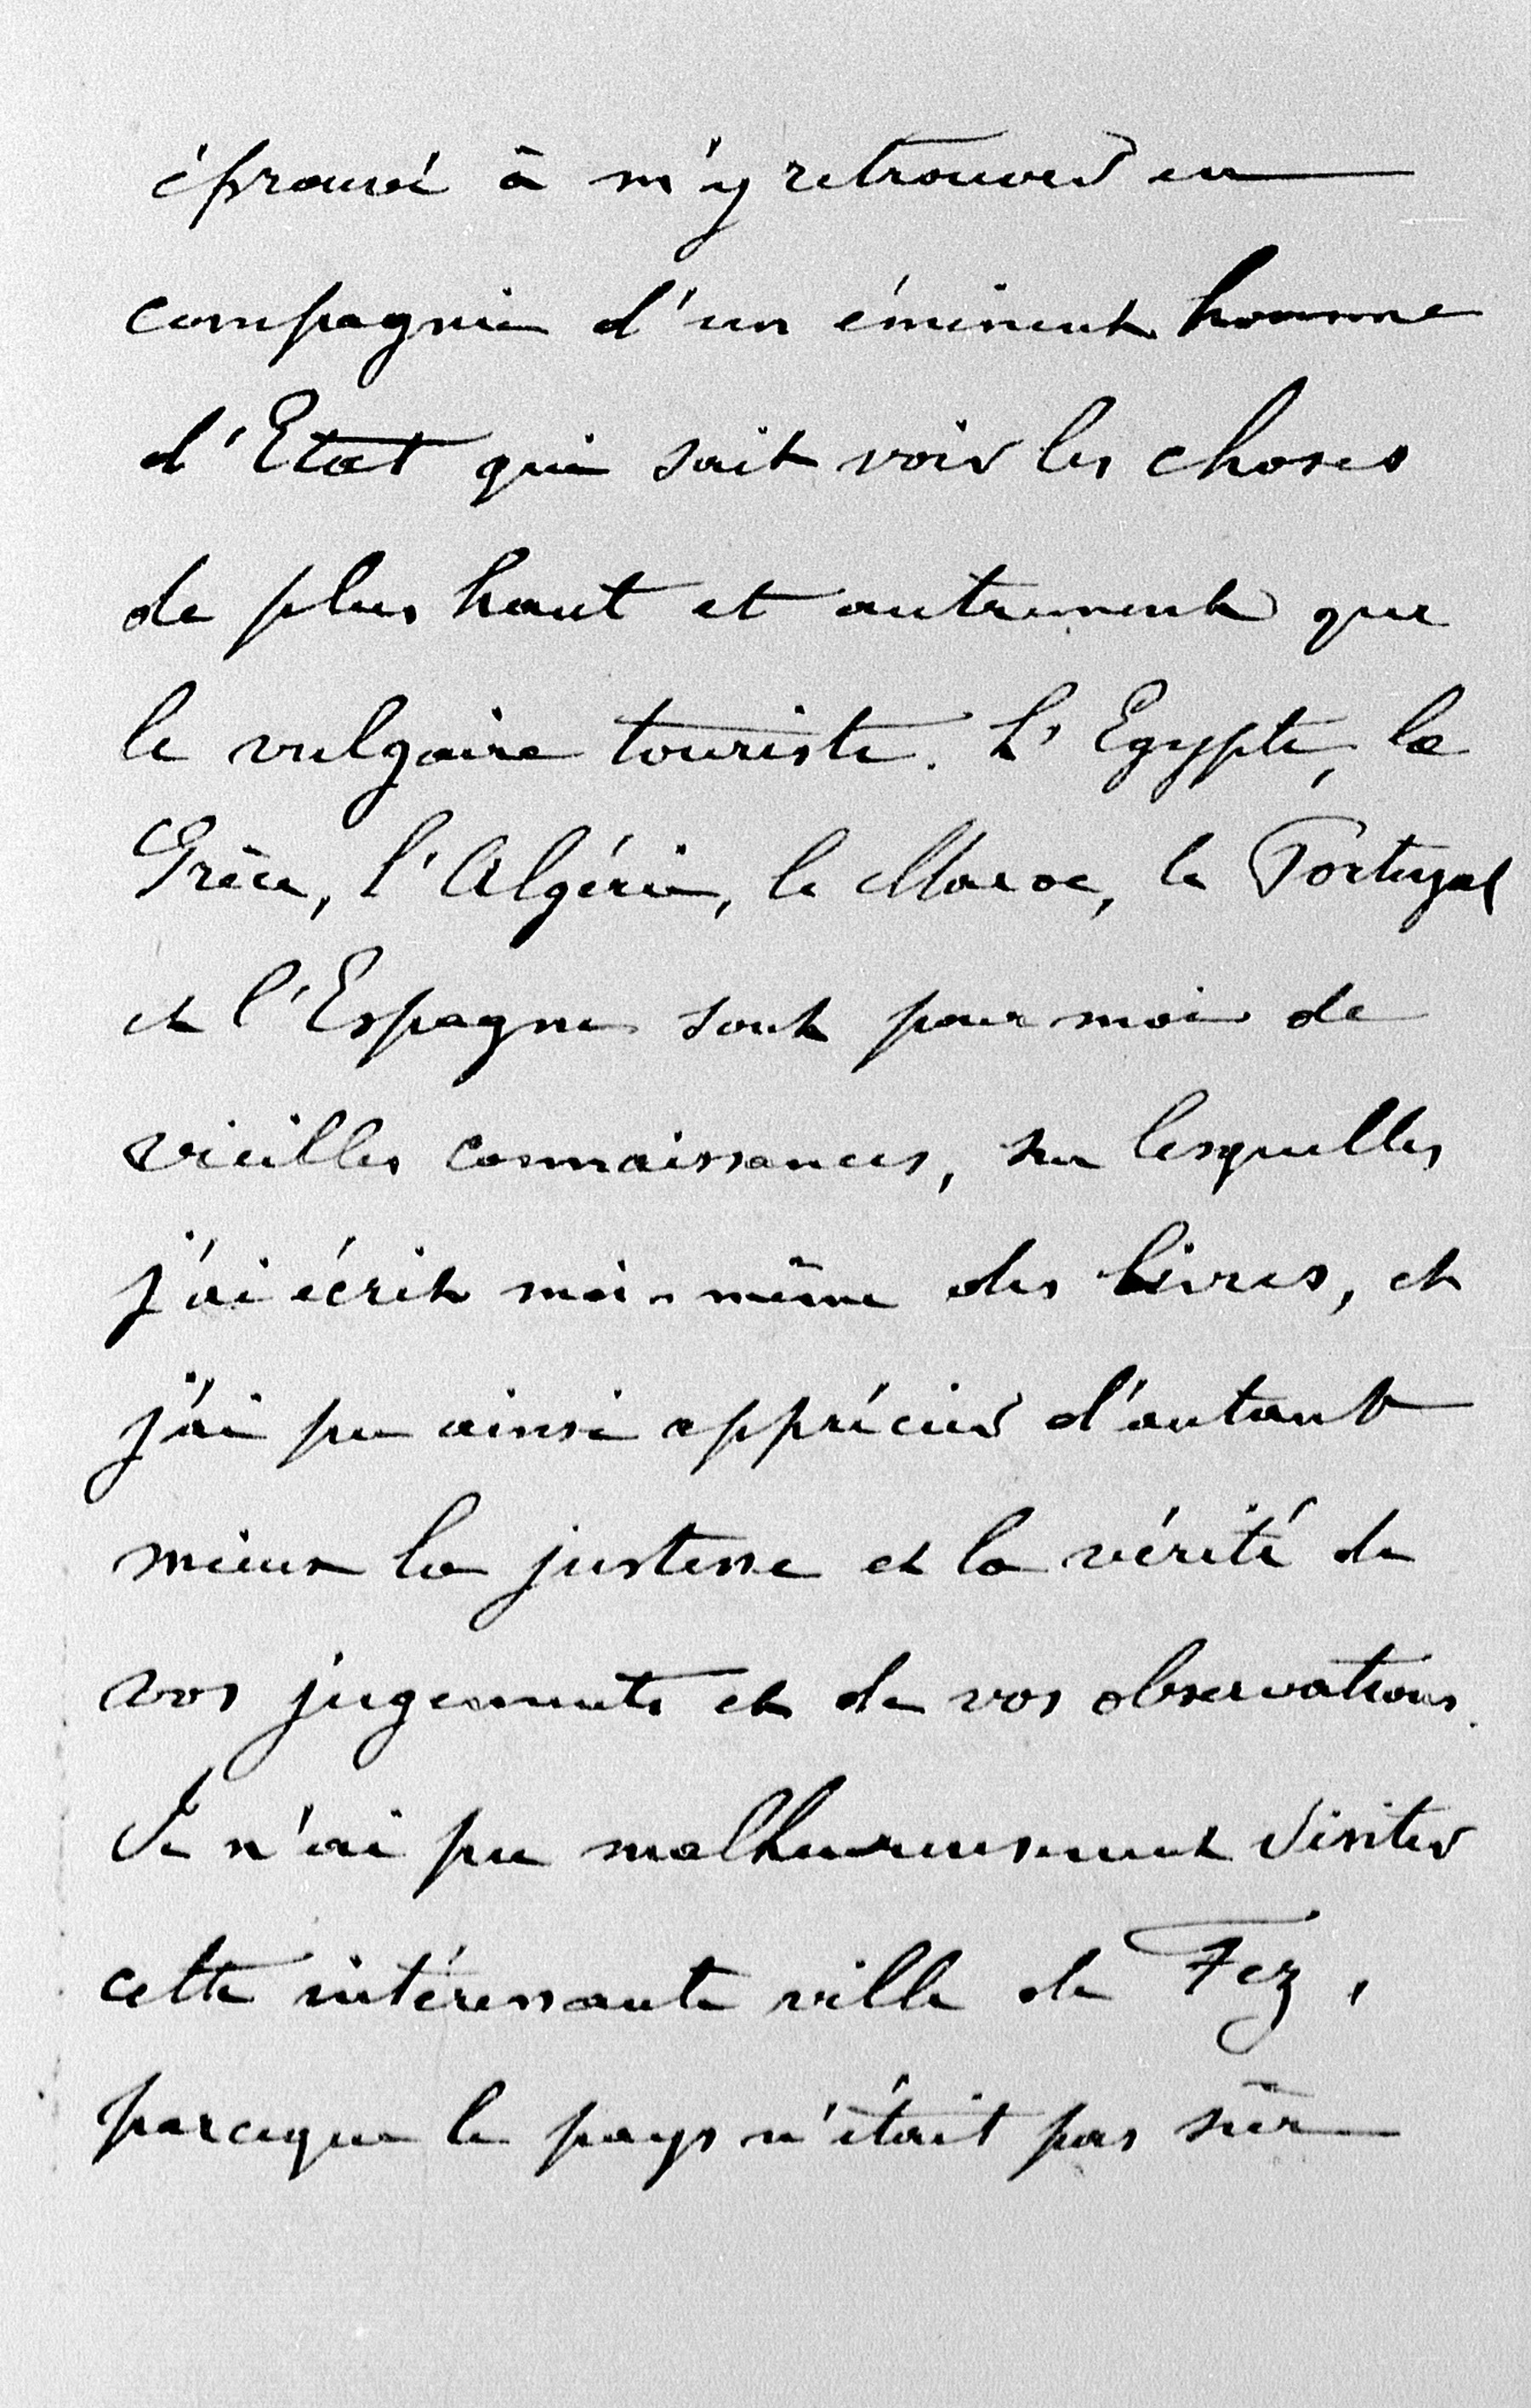 éprouvé à m'y retrouver en
compagnie d'un éminent homme
d'Etat qui sait voir les choses
de plus haut et autrement que
le vulgaire touriste. L'Egypte, la
Grèce, l'Algérie, le Maroc, le Portugal
et l'Espagne sont pour moi de
vieilles connaissances, sur lesquelles
j'ai écrit moi-même des livres, et
j'ai pu ainsi apprécier d'autant
mieux la justesse et la vérité de
vos jugements et de vos observations.
Je n'ai pu malheureusement visiter
cette intéressante ville de Fez,
parceque le pays n'était pas sûr